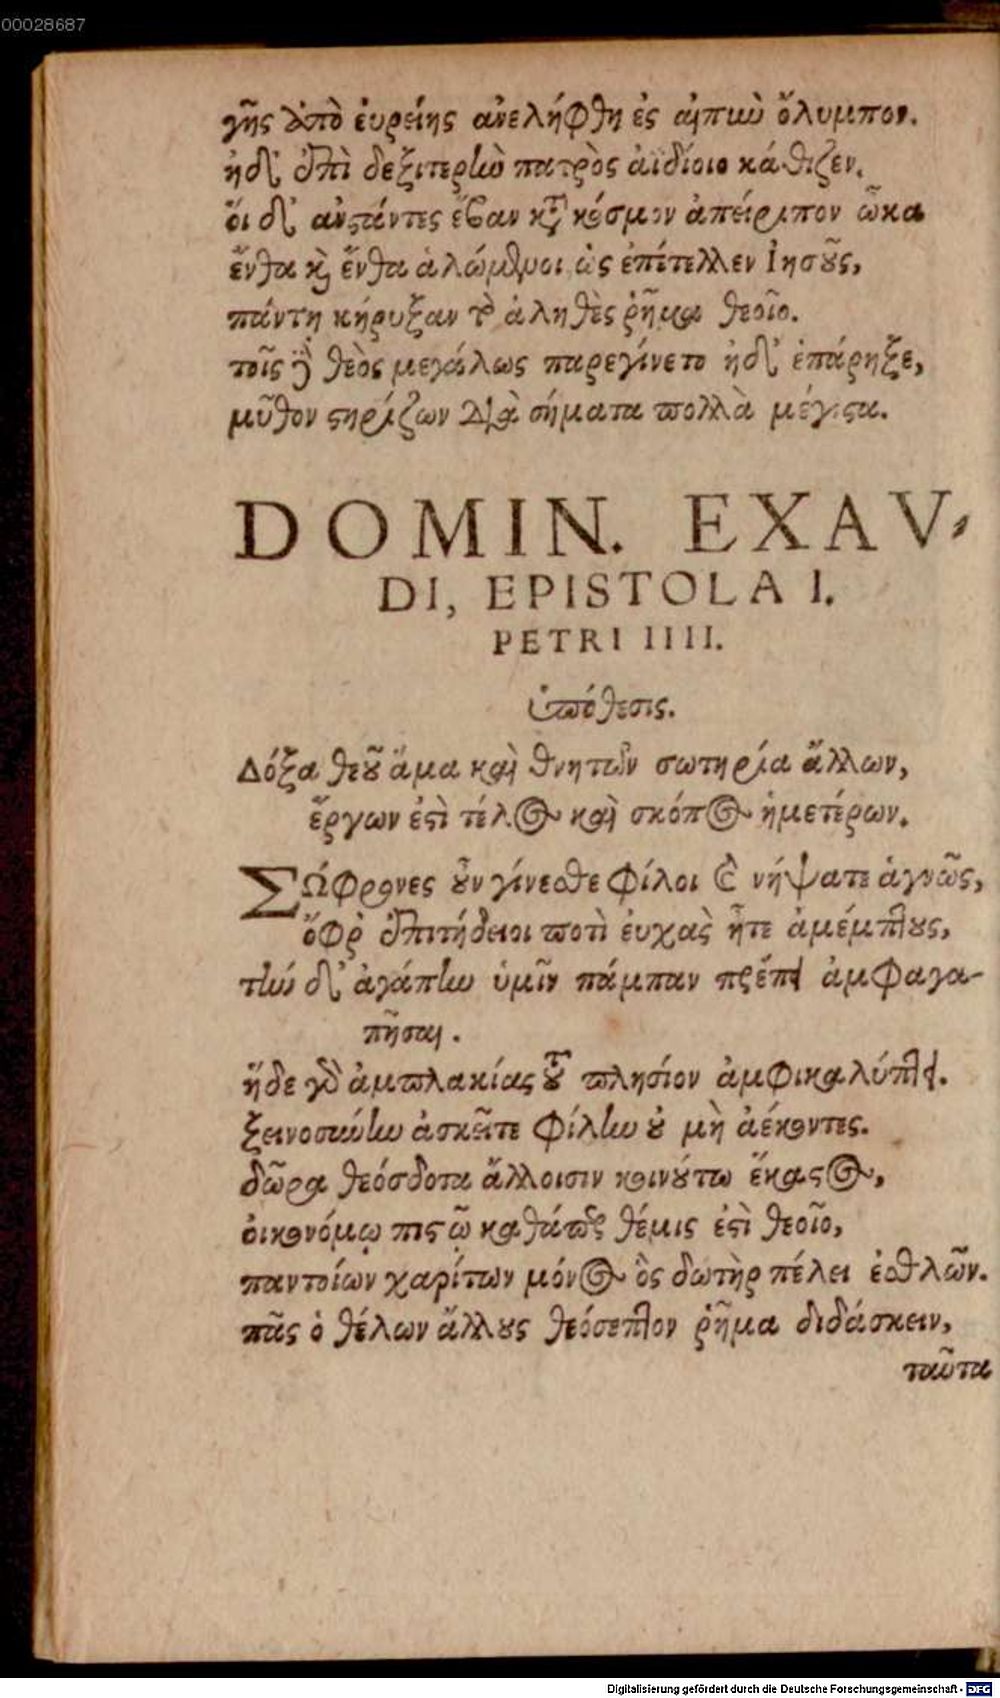 00028687
γῆς ἀπὸ ἐυρείης ἀνελήφθη ἐς αἰπὺν ὄλυμπον.
ἠδ' ἐπὶ δεξιτερὴν πατρὸς ἀϊδίοιο κάθιζεν.
ὅι δ' ἀνστάντες ἔβαν κατὰ κόσμον ἀπείριτον ὦκα
ἔνθα καὶ ἔνθα ἀλώμενοι ὡς ἐπέτελλεν Ἰησοῦς,
πάντῃ κήρυξαν τὸ ἀληθὲς ῥῆμα θεοῖο.
τοῖς γὰρ θεὸς μεγάλως παρεγίνετο ἠδ' ἐπάρηξε,
μῦθον στηρίζων διὰ σήματα πολλὰ μέγιστα.
DOMIN. EXAV-
DI, EPISTOLA I.
PETRI IIII.
ὑπόθεσις.
Δόξα θεοῦ ἅμα καὶ θνητῶν σωτηρία ἄλλων,
ἔργων ἐστὶ τέλος καὶ σκόπος ἡμετέρων.
ΣΏφρονες οὖν γίνεσθε φίλοι καὶ νήψατε ἁγνῶς,
ὄφρ' ἐπιτήδειοι ποτὶ ἐυχὰς ἦτε ἀμέμπτους,
τὴν δ' ἀγάπην ὑμῖν πάμπαν πρέπει ἀμφαγα-
πῆσαι.
ἥδε γὰρ ἀμπλακίας τοῦ πλησίον ἀμφικαλύπτει.
ξεινοσύνην ἀσκεῖτε φίλην οὐ μὴ ἀέκοντες.
δῶρα θεόσδοτα ἄλλοισιν κοινούτω ἕκαστος,
ὀικονόμῳ πιστῷ καθάπερ θέμις ἐστὶ θεοῖο,
παντοίων χαρίτων μόνος ὃς δωτὴρ πέλει ἐσθλῶν.
πᾶς ὁ θέλων ἄλλους θεόσεπτον ῥῆμα διδάσκειν,
ταῦτα
Digitalisierung gefördert durch die Deutsche Forschungsgemeinschaft - DFG